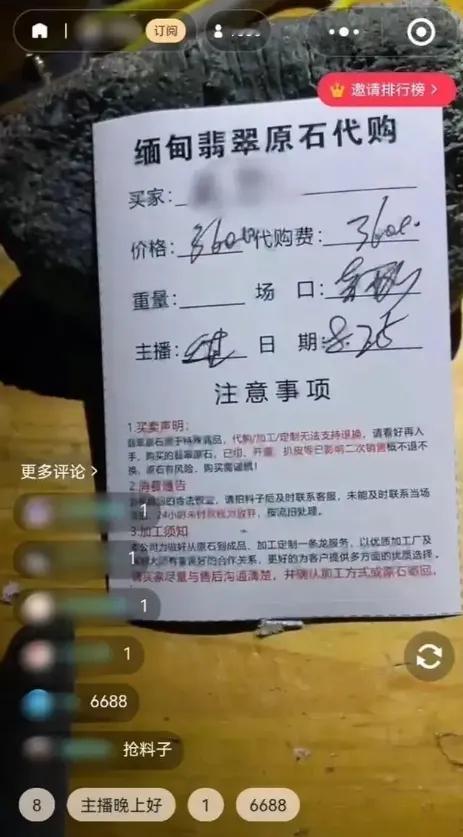 订阅
邀请排行榜 >
缅甸翡翠原石代购
买家:
价格:3600代购费:3600.
重量: 场 口:
主播: 日 期:8.25
注意事项
1.买卖声明:
翡翠原石属于特殊商品,代购/加工/定制无法支持退换,请看好再入
手,购买的翡翠原石,已切、开窗、扒皮等已影响二次销售概不退不
换,原石有风险,购买需谨慎!
2.消费通告
请拍料子后及时联系客服,未能及时联系当场
24小时未付款视为放弃,按流拍处理。
3.加工须知
本公司为做好从原石到成品、加工定制一条龙服务,以优质加工厂及
雕刻大师有着良好的合作关系,更好的为客户提供多方面的优质选择。
请买家尽量与售后沟通清楚,并确认加工方式或原石寄回。
更多评论 >
1
1
1
1
6688
抢料子
8 主播晚上好 1 6688